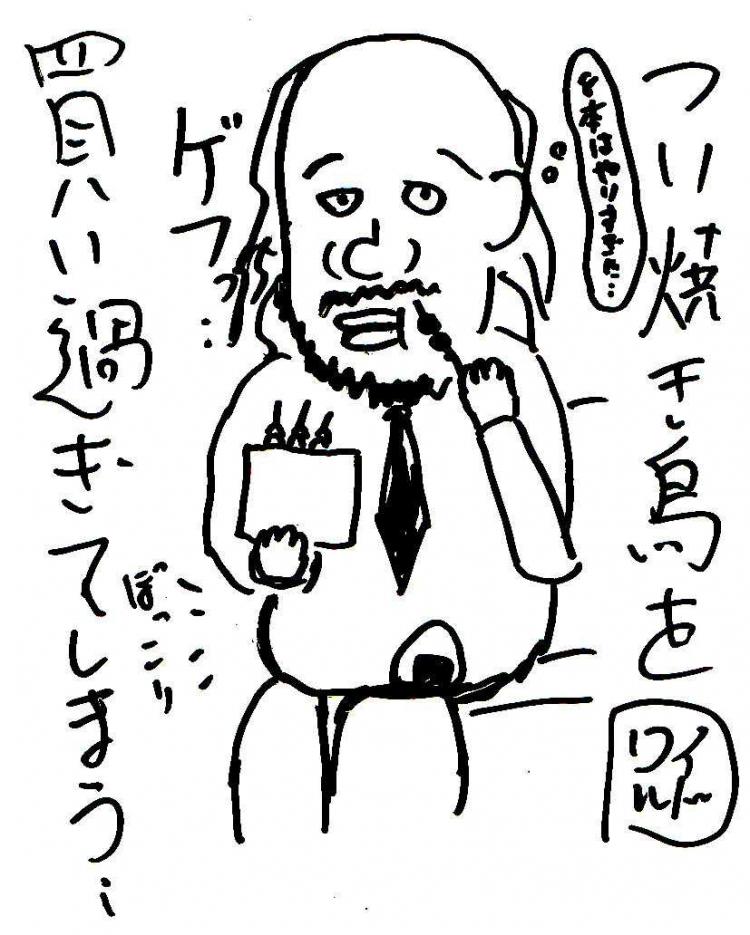 つい焼き鳥を
8本はやりすぎた…
ゲフっ…
買い過ぎてしまう…
ぽっこり
ワイ
ルド〜